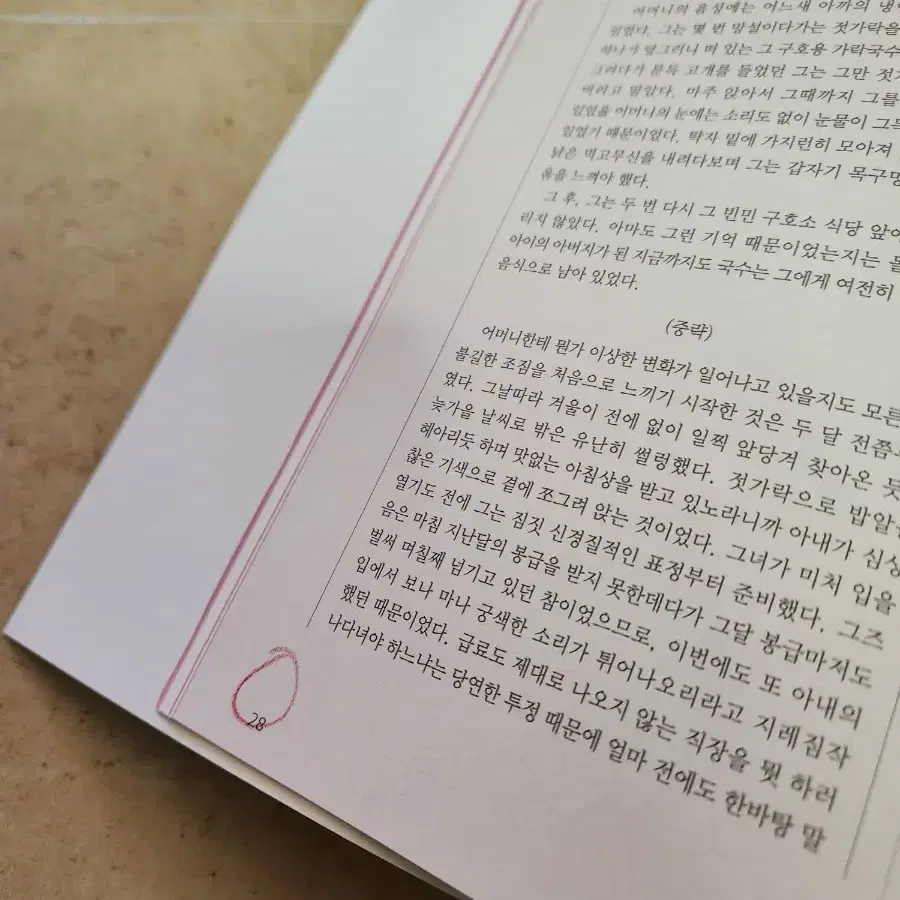 어머니의 음성에는 어느새 아까의
있었다. 그는 몇 번 망설이다가는 젓가락을
하나가 덩그러니 떠 있는 그 구호용 가락국수
그러다가 문득 고개를 들었던 그는 그만
버리고 말았다. 마주 앉아서 그때까지 그를
있었을 어머니의 눈에는 소리도 없이 눈물이
있었기 때문이었다. 탁자 밑에 가지런히 모아져
낡은 먹고무신을 내려다보며 그는 갑자기
움을 느껴야 했다.
그 후, 그는 두 번 다시 그 빈민 구호소 식당 앞에
리지 않았다. 아마도 그런 기억 때문이었는지는
아이의 아버지가 된 지금까지도 국수는 그에게 여전히
음식으로 남아 있었다.
(중략)
어머니한테 뭔가 이상한 변화가 일어나고 있을지도 모른
불길한 조짐을 처음으로 느끼기 시작한 것은 두 달 전쯤
였다. 그날따라 겨울이 전에 없이 일찍 앞당겨 찾아온 듯
늦가을 날씨로 밖은 유난히 썰렁했다. 젓가락으로 밥알
헤아리듯 하며 맛없는 아침상을 받고 있노라니까 아내가 심상
찮은 기색으로 곁에 쪼그려 앉는 것이었다. 그녀가 미처 입을
열기도 전에 그는 짐짓 신경질적인 표정부터 준비했다. 그즈
음은 마침 지난달의 봉급을 받지 못한데다가 그달 봉급마저도
벌써 며칠째 넘기고 있던 참이었으므로, 이번에도 또 아내의
입에서 보나 마나 궁색한 소리가 튀어나오리라고 지레짐작
했던 때문이었다. 급료도 제대로 나오지 않는 직장을 뭣 하러
나다녀야 하느냐는 당연한 투정 때문에 얼마 전에도 한바탕 말
28